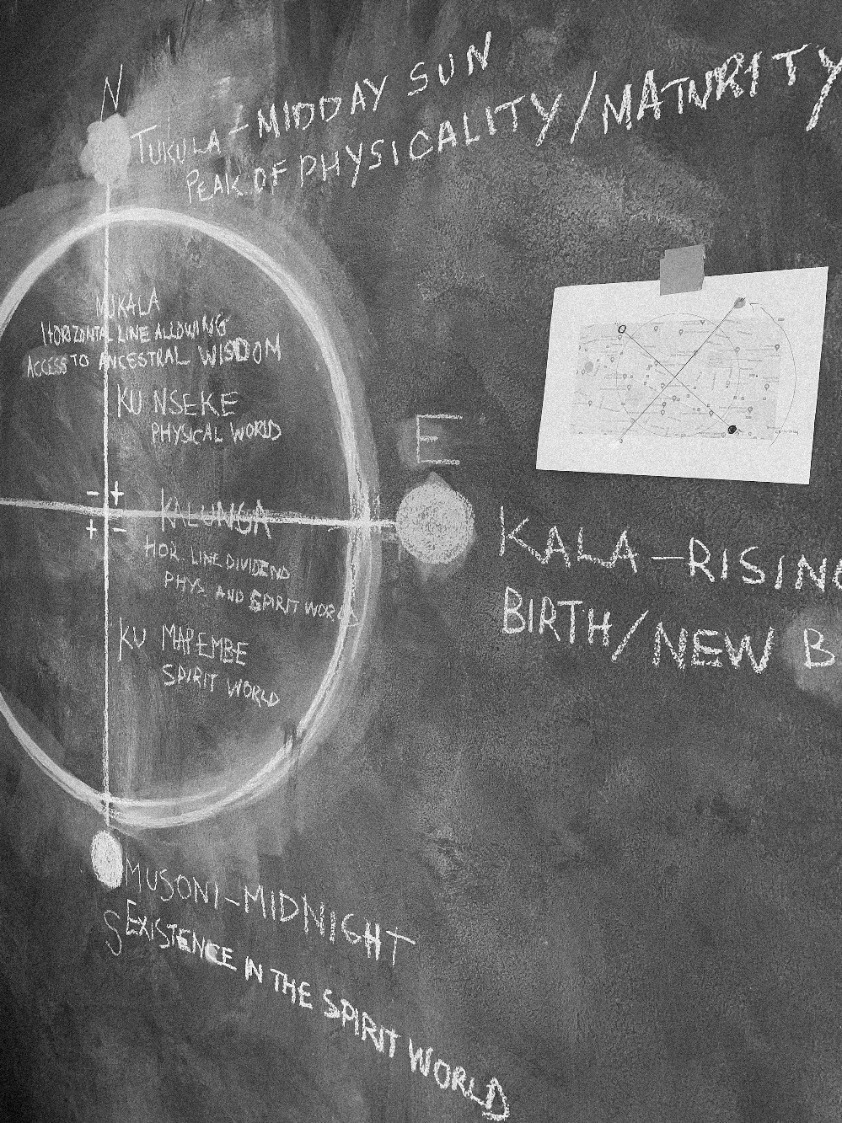 N
TUKULA – MIDDAY SUN
PEAK OF PHYSICALITY/MATURITY
MUKALA
HORIZONTAL LINE ALLOWING
ACCESS TO ANCESTRAL WISDOM
KU NSEKE
PHYSICAL WORLD
E
- +
+ -
KALUNGA
HOR. LINE DIVIDEND
PHYS. AND SPIRIT WORLD
KALA – RISING
BIRTH/NEW B
KU MAPEMBE
SPIRIT WORLD
MUSONI – MIDNIGHT
S
EXISTENCE IN THE SPIRIT WORLD